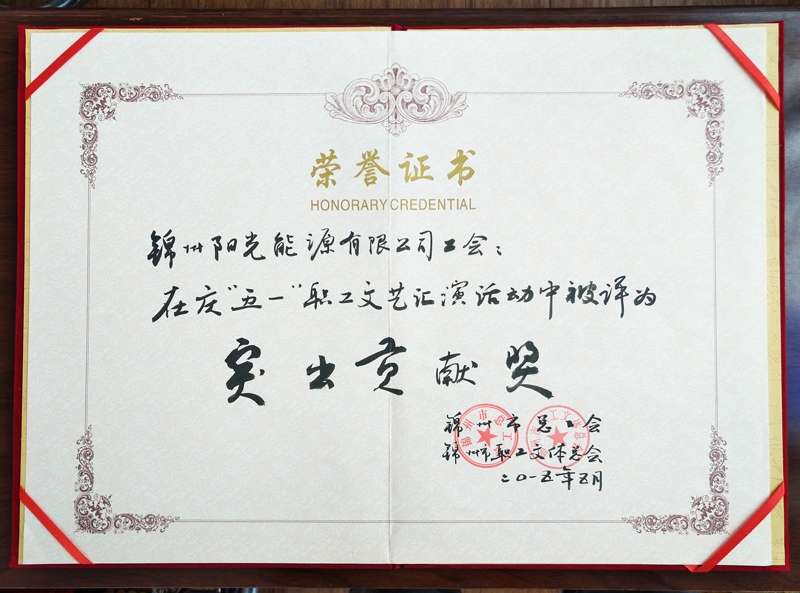 荣誉证书
HONORARY CREDENTIAL
锦州阳光能源有限公司工会:
在庆"五一"职工文艺汇演活动中被评为
突出贡献奖
锦州市总工会
锦州市职工文体总会
二〇一五年五月